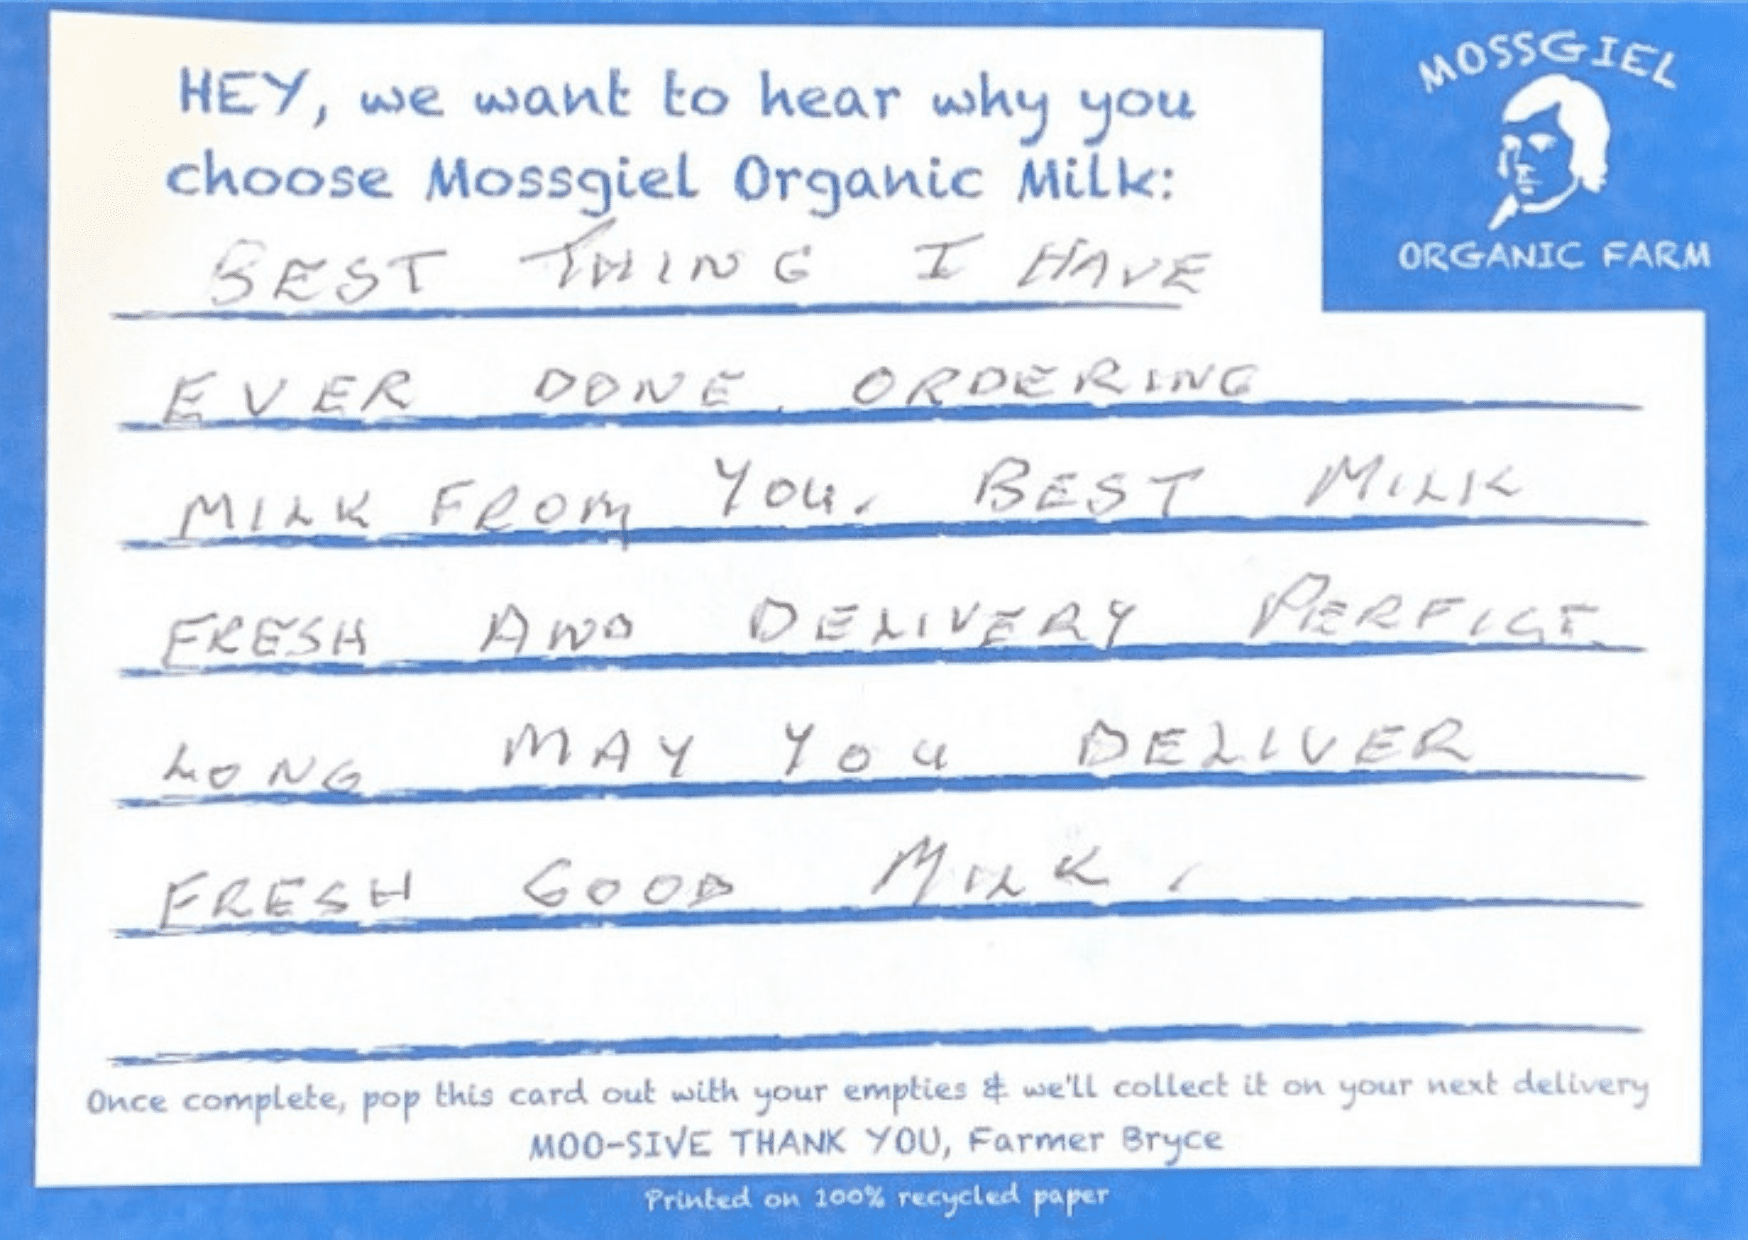 HEY, we want to hear why you
choose Mossgiel Organic Milk:
MOSSGIEL
ORGANIC FARM
BEST THING I HAVE
EVER DONE. ORDERING
MILK FROM YOU. BEST MILK
FRESH AND DELIVERY PERFICT.
LONG MAY YOU DELIVER
FRESH GOOD MILK.
Once complete, pop this card out with your empties & we'll collect it on your next delivery
MOO-SIVE THANK YOU, Farmer Bryce
Printed on 100% recycled paper